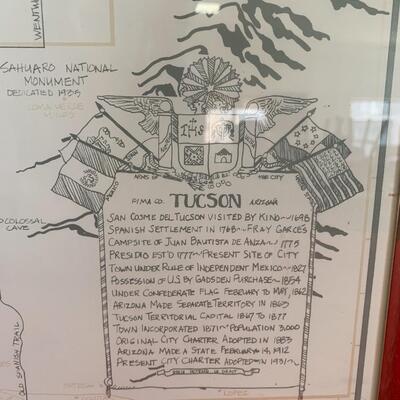 WENTW
SAHUARO NATIONAL
MONUMENT
DEDICATED 1933
COLOSSAL
CAVE
IHS
ARMS OF THE CITY
PIMA CO. TUCSON ARIZONA
SAN COSME DEL TUCSON VISITED BY KINO~1698
SPANISH SETTLEMENT IN 1768~FRAY GARCES
CAMPSITE OF JUAN BAUTISTA DE ANZA~1775
PRESIDIO EST'D 1777~PRESENT SITE OF CITY
TOWN UNDER RULE OF INDEPENDENT MEXICO~1827
POSSESSION OF U.S. BY GADSDEN PURCHASE~1854
UNDER CONFEDERATE FLAG FEBRUARY TO MAY, 1862
ARIZONA MADE SEPARATE TERRITORY IN 1863
TUCSON TERRITORIAL CAPITAL 1867 TO 1877
TOWN INCORPORATED 1871~POPULATION 3,000
ORIGINAL CITY CHARTER ADOPTED IN 1883
ARIZONA MADE A STATE FEBRUARY 14, 1912
PRESENT CITY CHARTER ADOPTED~IN 1931~
OLD SPANISH TRAIL
LOPEZ